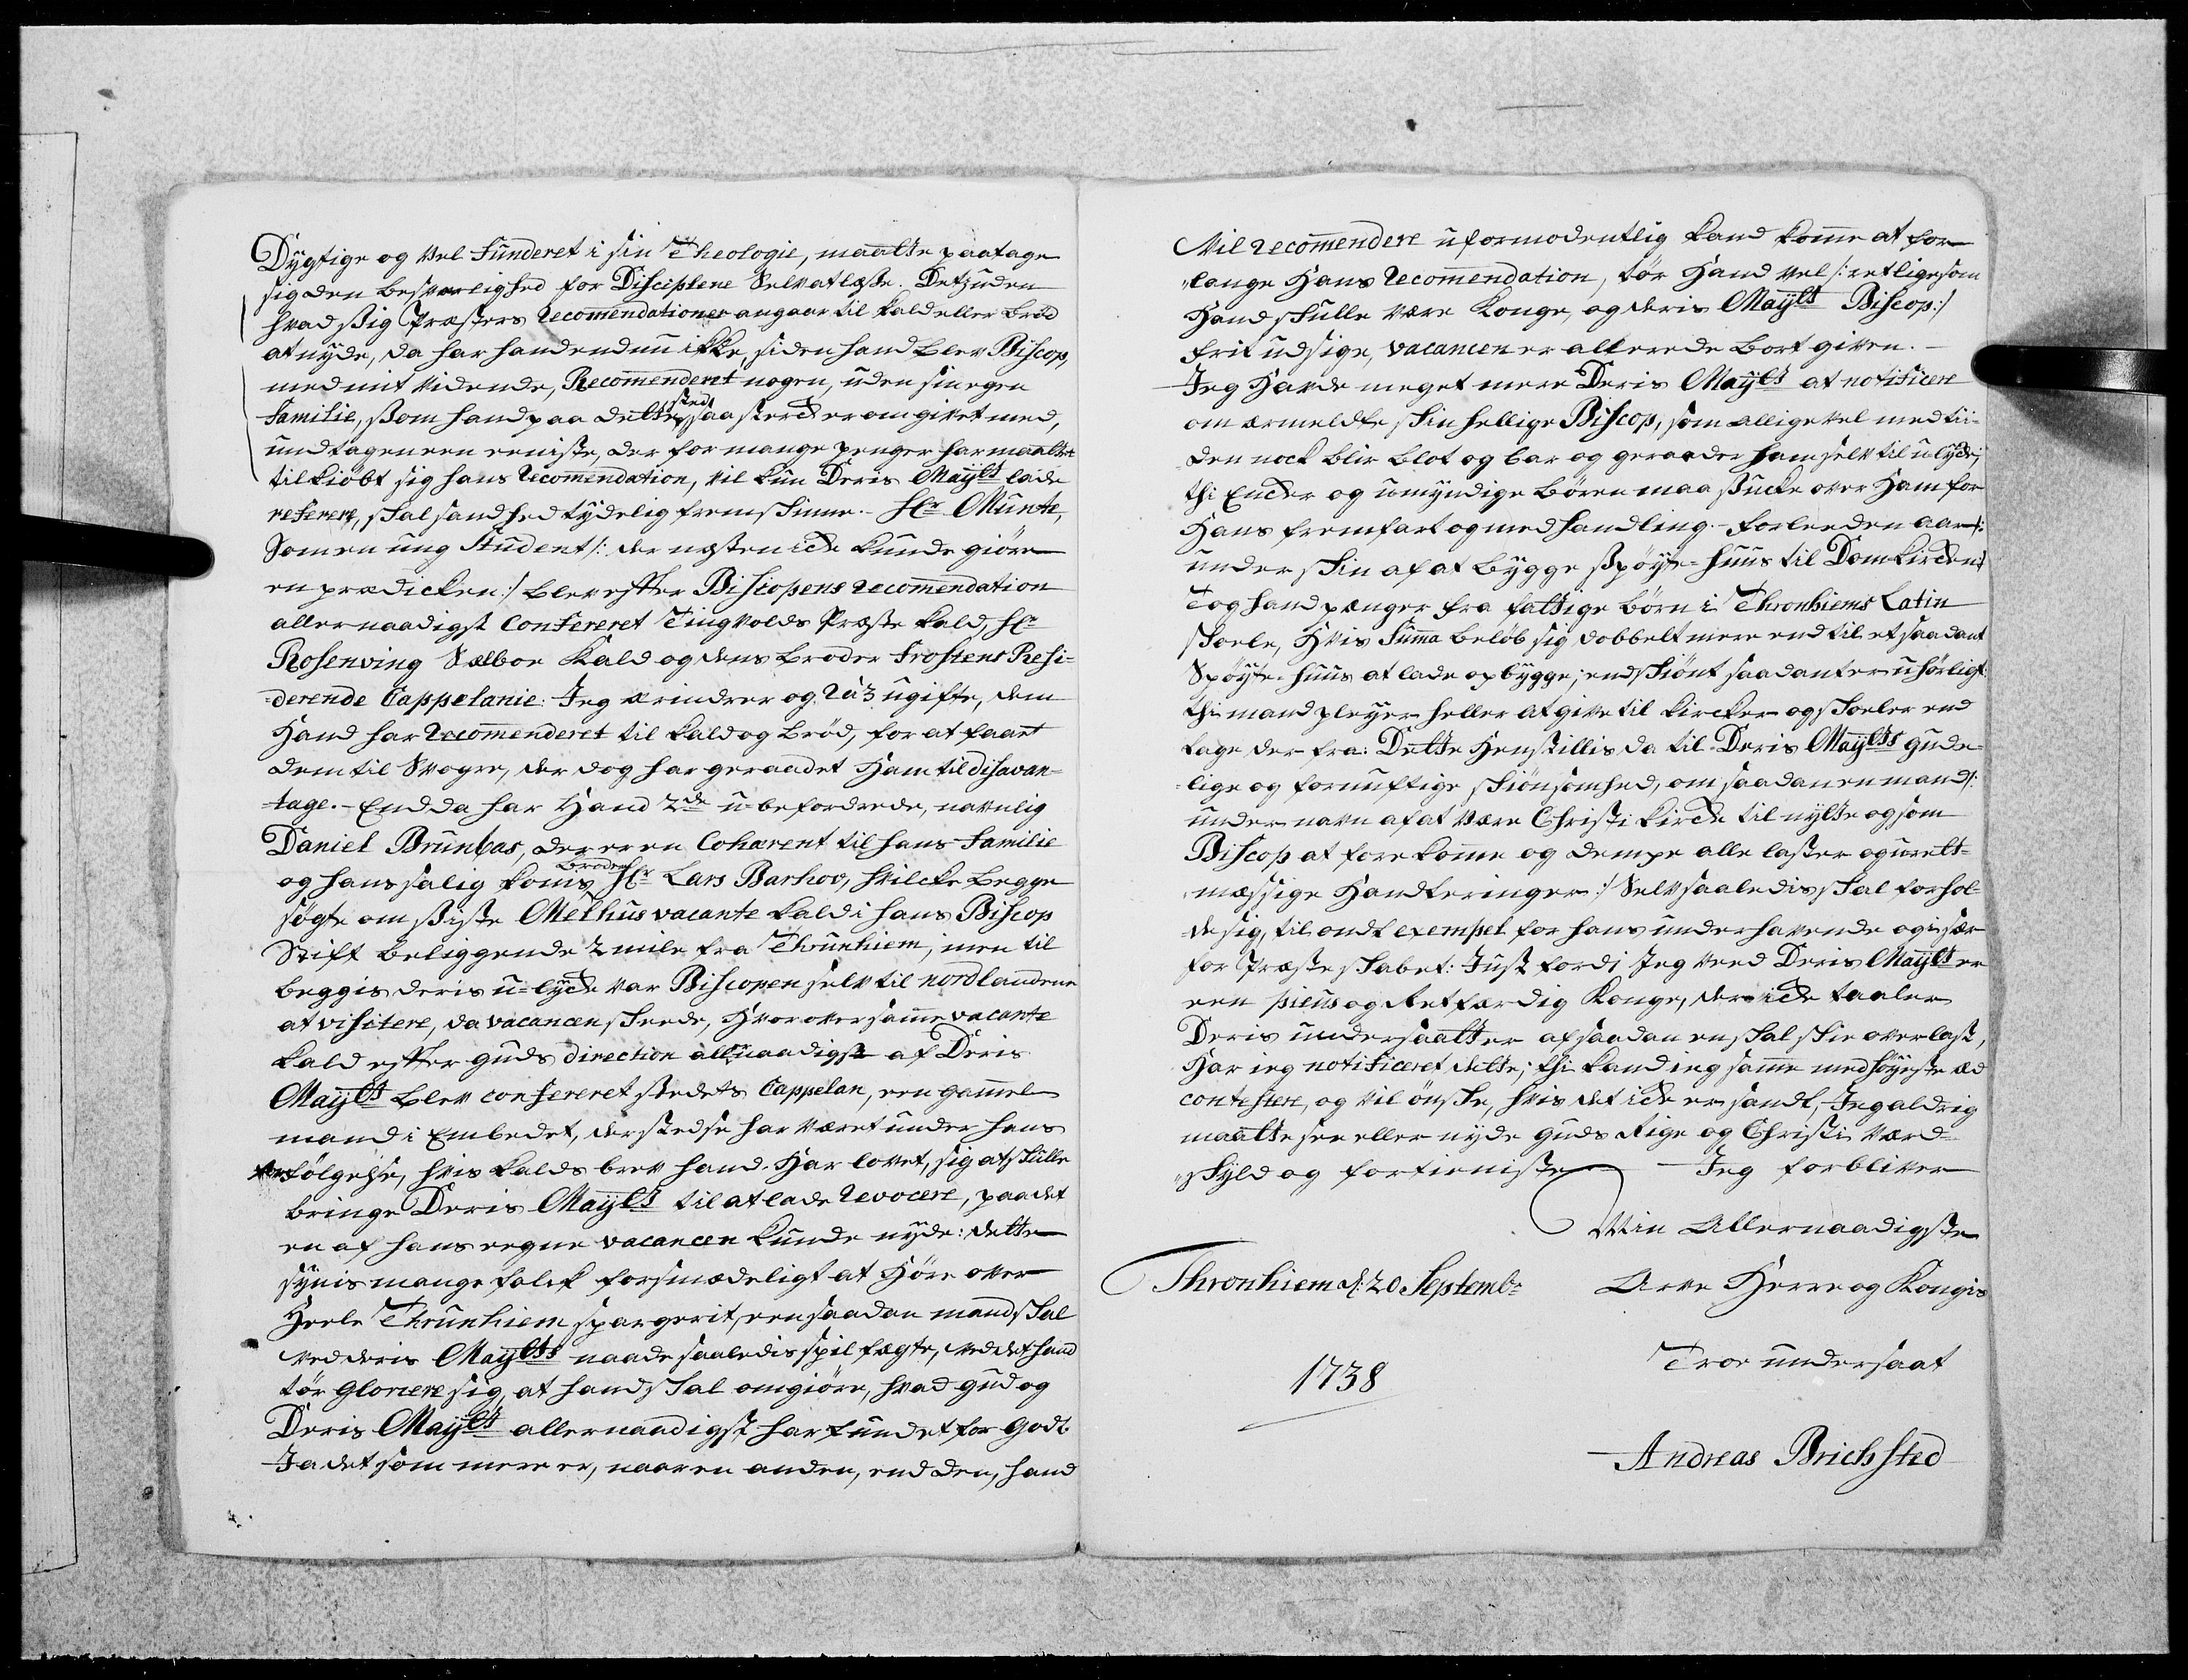 Dygtige og vel Funderet i sin Theologie, maatte paatage
sig den besværlighed for Disciplene Selv at læse. Desuden
hvad ßig Præsters Recomendationer angaar til kald eller brød
at nyde, da har hand endnu ikke, siden hand blev Biscop,
med mit vidende, Recomenderet nogen, uden sin egen
Familie, ßom hand paa dette sted saa sterck er omgivet med,
undtagen een eeniste, der for mange penger har maattet
tilkiøbt sig hans Recomendation, vil kun Deris Mayts lade
referere, skal sandhed tydelig fremskinne. Hr Munte,
Som en ung Student /: der næsten icke kunde giøre
en prædicken :/ blev efter Biscopens recomendation
allernaadigst Confereret Tingvolds Præste kald, Hr
Rosenving Sælboe Kald og dens broder Frostens Resi-
derende Cappelanie: Jeg erindrer og 2 à 3 ugifte, dem
Hand har Recomenderet til kald og brød, for at faaet
dem til Svogre, der dog har geraadet Ham til disavan-
tage. End da har Hand 2de u-befordrede, navnlig
Daniel Brunbas, der er en Cohærent til hans Familie
og hans salig kones broder Hr Lars Barhov, hvilcke begge
søgte om ßiste Melhus vacante kald i hans Biscop
Stift beliggende 2 mile fra Thrunhiem, men til
beggis deris u-lycke var Biscopen selv til nordlandene
at visitere, da vacancen skeede, Hvorover samme vacante
kald efter guds direction allernaadigst af Deris
Mayts blev confereret stedets Cappelan, een gammel
mand i Embedet, der stedse har været under hans
forfølgelse, hvis kalds brev hand Har lovet, sig at skulle
bringe Deris Mayts til at lade Revocere, paa det
en af hans egne vacancen kunde nyde: dette
synis mange folck forsmædeligt at Høre over
Heele Thrunhiem spargerit, een saadan mand skal
ved deris Mayts naade saaledis spilfægte, ved det hand
tør Gloriere sig, at hand skal omgiøre, hvad gud og
Deris Mayts allernaadigst har fundet for Godt
Ja det som mere er, naar en anden, end den, hand
Vil recomendere uformodentlig kand komme at for-
lange Hans Recomendation, tør Hand vel /: ret ligesom
Hand skulle være Konge, og deris Mayts Biscop :/
frit udsige, vacancen er allerede bort given.
Jeg Havde meget mere Deris Mayts at notificere
om ermeldte skinhellige Biscop, som alligevel med tii-
den nock blir blot og bar og geraader ham selv til ulycke;
thi Encker og umyndige børen maa ßucke over Ham for
Hans fremfart og medhandling. Forleeden aar /:
under skin af at bygge ßpøyte-huus til Domkircken :/
Tog hand penger fra fattige børn i Thronhiems Latin
skoele, Hvis Summa beløb sig dobbelt mere end til et saadant
Spøyte-huus at lade opbygge; endskiønt saadant er uhørligt
thi mand pleyer heller at give til kircker og skoeler end
tage der fra: Dette Henstillis da til Deris Mayts gude-
lige og fornuftige skiønsomhed, om saadan en mand /:
under navn af at være Christi kircke til nytte og som
Biscop at forekomme og dempe alle laster og urett-
mæssige Handteringer :/ Selv saaledis skal forhol-
de sig, til ondt exempel for hans underhavende og især
for Præsteskabet: Just fordi Jeg veed Deris Mayts er
een pieus og Retfærdig Konge, der icke taaler
Deris undersaatter af saadan en skal skee overlast,
Har ieg notificeret dette; thi kand ieg samme med høyeste æd
contestere, og vil ønske, hvis det icke er sandt, Jeg aldrig
maatte see eller nyde guds Rige og Christi værd-
skyld og fortieniste Jeg forbliver
Min Allernaadigste
Thronhiem d: 20 Septembr Arve Herre og Kongis
Troe undersaat
1738
Andreas Brichsted